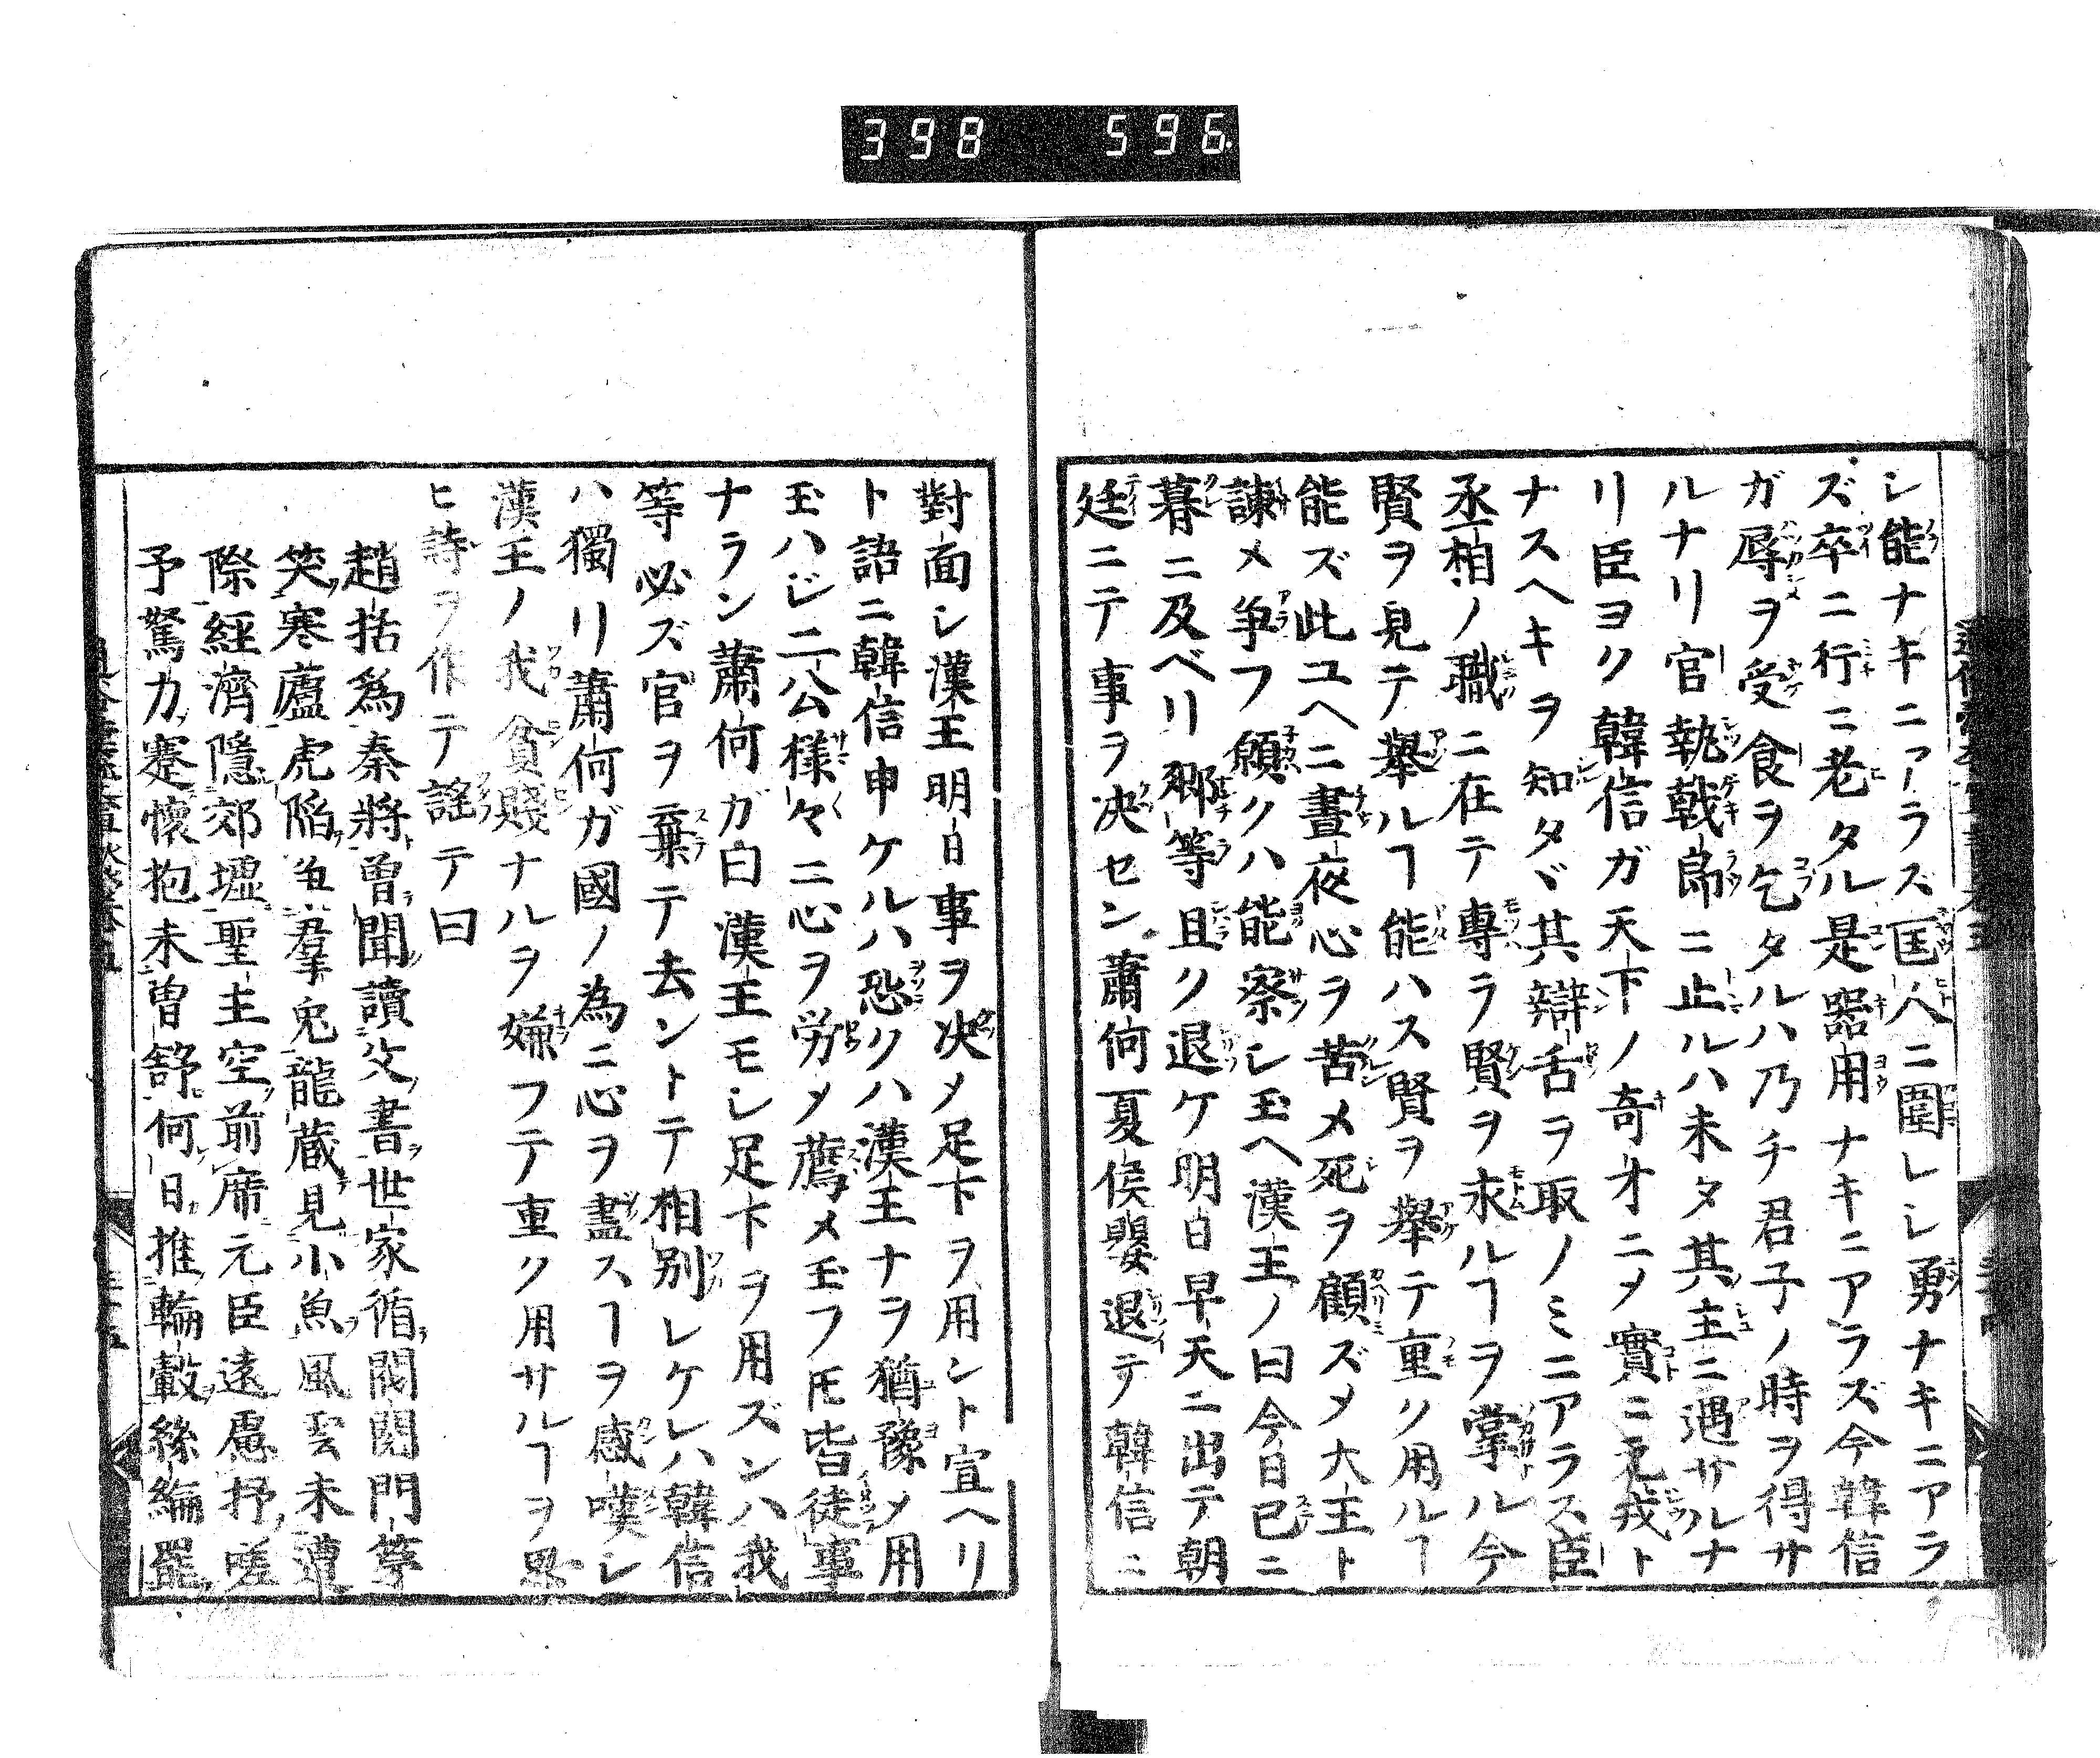 398 596
シ能ナキニアラス匡人ニ圍レシ勇ナキニアラ
ズ卒ニ行ニ老タル是器用ナキニアラズ今韓信
ガ辱ヲ受食ヲ乞タルハ乃チ君子ノ時ヲ得サ
ルナリ官執戟郎ニ止ルハ未タ其主ニ遇サルナ
リ臣ヨク韓信ガ天下ノ奇才ニヿ實ニ元戎ト
ナスヘキヲ知タヾ其辯舌ヲ取ノミニアラス臣
丞相ノ職ニ在テ專ラ賢ヲ求ルヿヲ掌ル今
賢ヲ見テ舉ルヿ能ハス賢ヲ舉テ重ク用ルヿ
能ズ此ユヘニ晝夜心ヲ苦メ死ヲ顧ズメ大王ト
諫メ争フ願クハ能察シ玉ヘ漢王ノ曰今日已ニ
暮ニ及ベリ郷等且ク退ケ明日早天ニ出テ朝
廷ニテ事ヲ决セン蕭何夏侯嬰退テ韓信ニ
對面シ漢王明日事ヲ决メ足下ヲ用ント宣ヘリ
ト語ニ韓信申ケルハ恐クハ漢王ナヲ猶豫メ用
玉ハジ二公様々ニ心ヲ労メ薦メ玉フ𪜈皆徒事
ナラン蕭何ガ曰漢王モシ足下ヲ用ズンハ我
等必ズ官ヲ棄テ去ントテ相別レケレハ韓信
ハ獨リ蕭何ガ國ノ為ニ心ヲ盡スヿヲ感嘆シ
漢王ノ我貧賤ナルヲ嫌フテ重ク用サルヿヲ思
ヒ詩ヲ作テ謡テ曰
趙括爲秦將曽聞讀父書世家循閥閲門等
笑寒蘆虎陥羣兎龍蔵見小魚風雲未遭
際經濟隱郊墟聖主空前席元臣遠慮抒嗟
予駑力蹇懷抱未曽舒何日推輪轂絲綸罷